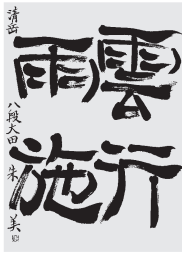 雲行
雨施
清岳
八段太田朱美